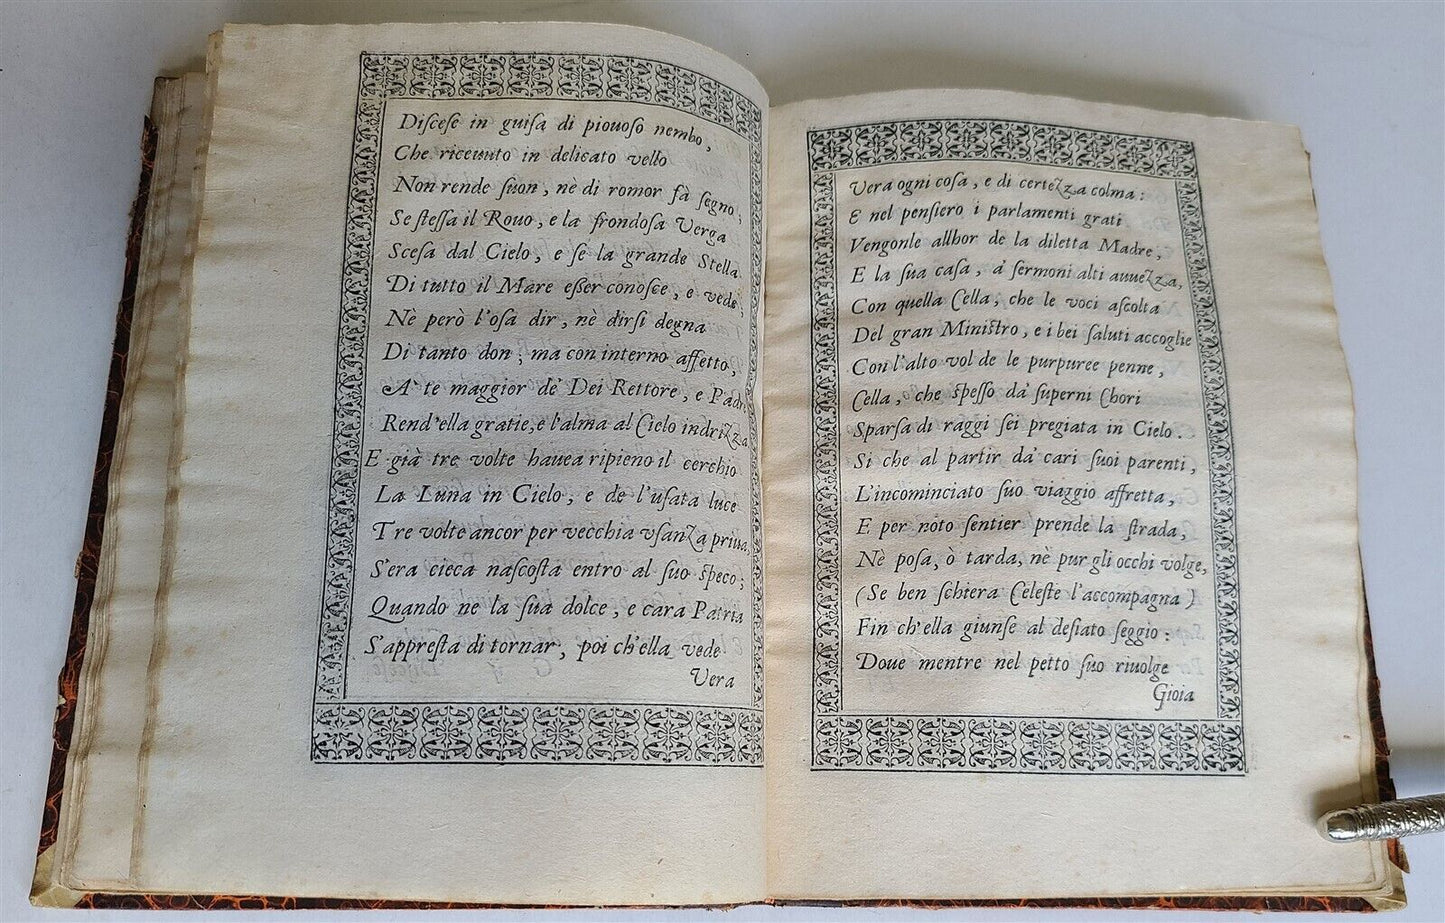 Diſceſe in guiſa di piouoſo nembo,
Che riceuuto in delicato vello
Non rende ſuon, nè di romor fà ſegno,
Se ſteſſa il Rouo, e la frondoſa Verga
Scesa dal Cielo, e ſe la grande Stella
Di tutto il Mare eſſer conoſce, e vede,
Nè però l'oſa dir, nè dirſi degna
Di tanto don, ma con interno affetto,
A' te maggior dè Dei Rettore, e Padre
Rend'ella gratie, e l'alma al Cielo indrizza
E già tre volte hauea ripieno il cerchio
La Luna in Cielo, e de l'uſata luce
Tre volte ancor per vecchia vſanza priua,
S'era cieca naſcoſta entro al ſuo ſpeco;
Quando ne la ſua dolce, e cara Patria
S'appreſta di tornar, poi ch'ella vede
Vera
Vera ogni coſa, e di certezza colma:
E nel penſiero i parlamenti grati
Vengonle allhor de la diletta Madre,
E la ſua caſa, à ſermoni alti auuezza,
Con quella Cella, che le voci aſcolta
Del gran Miniſtro, e i bei ſaluti accoglie
Con l'alto vol de le purpuree penne,
Cella, che ſpeſſo dà ſuperni Chori
Sparſa di raggi ſei pregiata in Cielo.
Si che al partir dà cari ſuoi parenti,
L'incominciato ſuo viaggio affretta,
E per noto ſentier prende la ſtrada,
Nè poſa, ò tarda, nè pur gli occhi volge,
(Se ben ſchiera Celeſte l'accompagna)
Fin ch'ella giunſe al deſiato ſeggio:
Doue mentre nel petto ſuo riuolge
Gioia